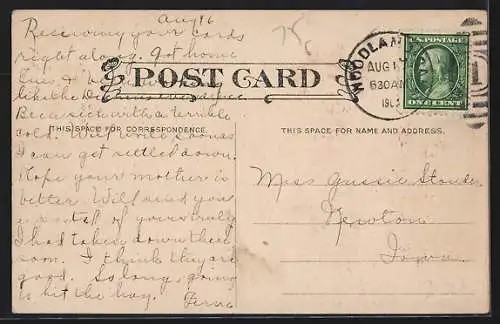 Aug 16
Receiving your cards
right along. Got home
POST CARD
WOODLA
AUG 1
630 AM
U.S. POSTAGE
ONE CENT
1
Been sick with a terrible
THIS SPACE FOR CORRESPONDENCE.
THIS SPACE FOR NAME AND ADDRESS.
cold. Will write soon as
I can get settled down.
Hope your mother is
better. Will send you
a postal of yours truly
I had taken down there
soon. I think they are
good. So long, going
to hit the hay.
Miss Gussie
Newton
Iowa